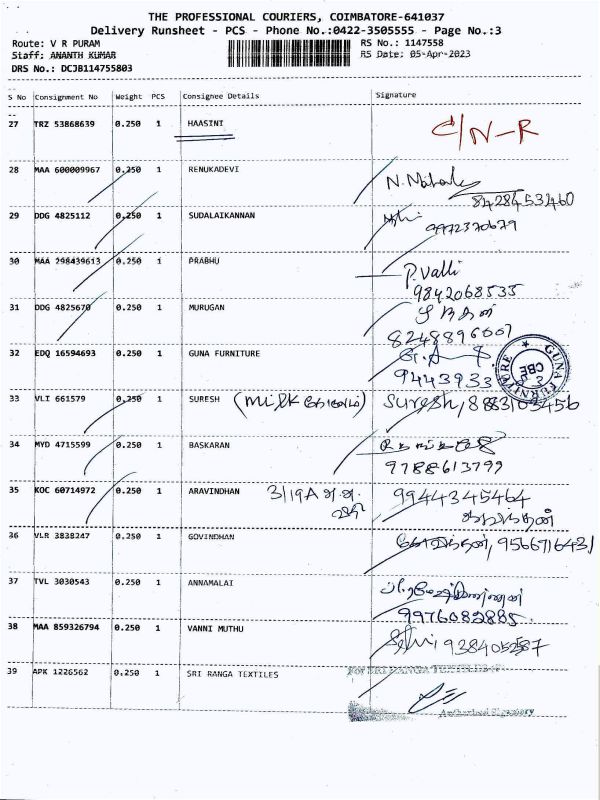 THE PROFESSIONAL COURIERS, COIMBATORE-641037
Delivery Runsheet - PCS - Phone No.:0422-3505555 - Page No.:3
Route: V R PURAM RS No.: 1147558
Staff: ANANTH KUMAR RS Date: 05-Apr-2023
DRS No.: DCJB114755803
S No Consignment No Weight PCS Consignee Details Signature
27 TRZ 53868639 0.250 1 HAASINI C/N-R
28 MAA 600009967 0.250 1 RENUKADEVI
8428453460
29 DDG 4825112 0.250 1 SUDALAIKANNAN
9972370679
30 MAA 298439613 0.250 1 PRABHU P.Valli
9842068535
31 DDG 4825670 0.250 1 MURUGAN
8248896607
32 EDQ 16594693 0.250 1 GUNA FURNITURE
9443933
GUNA FURNITURE
CBE
33 VLI 661579 0.250 1 SURESH (Milk Suresh, 8883103456
34 MYD 4715599 0.250 1 BASKARAN
9788613799
35 KOC 60714972 0.250 1 ARAVINDHAN 3/19A 9944345464
அரவிந்தன்
36 VLR 3838247 0.250 1 GOVINDHAN கோவிந்தன், 9566716431
37 TVL 3030543 0.250 1 ANNAMALAI
9976082885
38 MAA 859326794 0.250 1 VANNI MUTHU Selvi 938405287
39 APK 1226562 0.250 1 SRI RANGA TEXTILES For SRI RANGA TEXTILES
Authorised Signatory